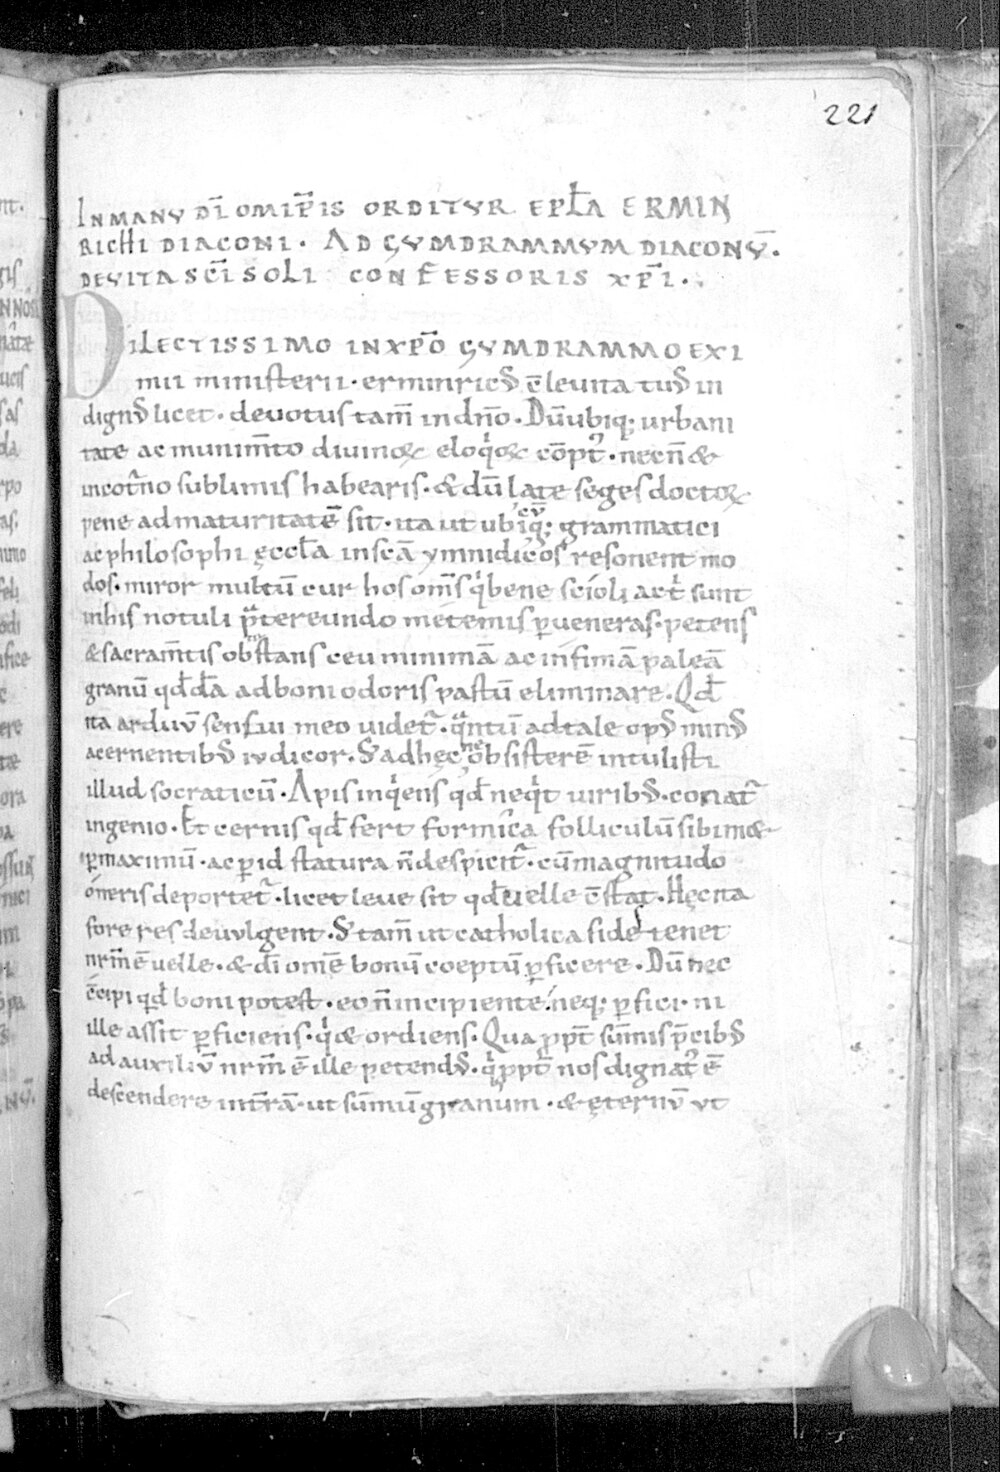 221
IN MANU DĪ OMIP̄IS ORDITUR EPL̄A ERMIN
RICHI DIACONI · AD GUMDRAMMUM DIACONŪ ·
DE VITA SC̄I SOLI CONFESSORIS XP̄I ·
DILECTISSIMO IN XP̄O GUMDRAMMO EXI
mii ministerii · erminric᷒ ē leuita tu᷒ in
dign᷒ licet · devotus tam̄ in dn̄o · Dū ubiq; urbani
tate ac munim̄to divinæ eloq̇æ cōpt᷒ · necn̄ &
in cot̄no sublimis habearis · & dū late seges doctæ
pene ad maturitatē sit · ita ut ubiq; cū grammatici
ac philosophi ęccl̄a in scā ymnidicos resonent mo
dos · miror multū cur hos om̄s q̇ bene scioli act̄ sunt
in his notuli p̄tereundo me temis ꝑueneras · petens
& sacram̄tis obstans ceu minimā ac infimā paleā
granū qd̄dā ad boni odoris pastū eliminare · Qd̄
ita arduū sensui meo uidet᷒ · q̄ntū ad tale op᷒ min᷒
acernentib᷒ iudicor · S; ad hęc ne obsisterē intulisti
illud socraticū · Apis inq̇ens qd̄ neq̇t uirib᷒ · conat᷒
ingenio · Et cernis qd̄ fert formica folliculū sibimæ
ꝑmaximū · ac ꝑ id statura n̄ despicit᷒ · cū magnitudo
oneris deportet᷒ · licet leve sit qd̄ uelle c̄stat · Hęc ita
fore res devulgent · S; tam̄ ut catholica fides tenet
nr̄m ē uelle · & dī om̄e bonū coeptū ꝑficere · Dū nec
īcipi qd̄ boni potest · eo n̄ incipiente · neq; ꝑfici · ni
ille assit ꝑficiens · q̇ & ordiens · Qua ꝓpt̄ sūmis p̄cib᷒
ad auxiliū nr̄m ē ille petend᷒ · q̇ ꝓpt̄ nos dignat᷒ ē
descendere in t̄rā · ut sūmū granum · & ęternū ut